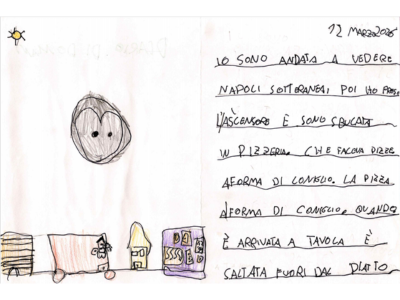 12 MARZO 2025
IO SONO ANDATA A VEDERE
NAPOLI SOTTERANEA, POI HO PRESO
L'ASCENSORE È SONO SBUCATA
IN PIZZERIA. CHE FACEVA PIZZE
AFORMA DI CONIGLIO. LA PIZZA
AFORMA DI CONIGLIO, QUANDO
È ARRIVATA A TAVOLA È
SALTATA FUORI DAL PIATTO